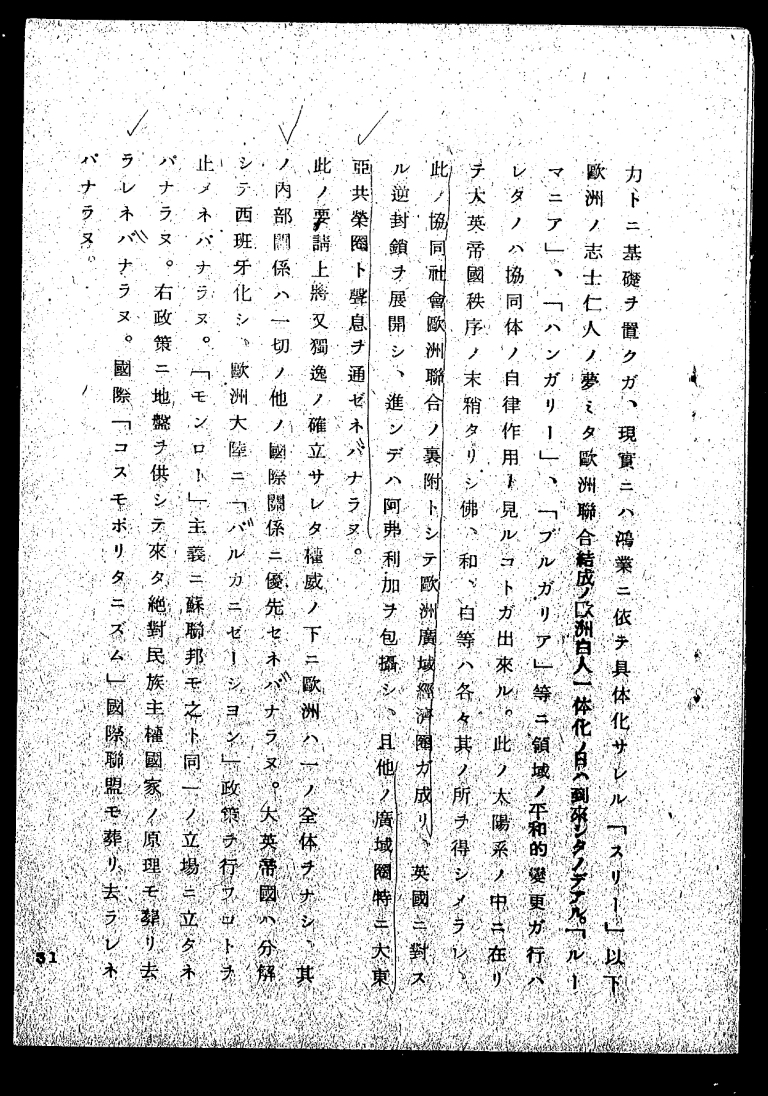 力トニ基礎ヲ置クガ、現實ニハ鴻業ニ依テ具体化サレル「スリー」以下
歐洲ノ志士仁人ノ夢ミタ歐洲聯合結成ノ歐洲白人一体化ノ日ハ到來シタノデアル。「ルー
マニア」、「ハンガリー」、「ブルガリア」等ニ領域ノ平和的變更ガ行ハ
レタノハ協同体ノ自律作用ト見ルコトガ出來ル。此ノ太陽系ノ中ニ在リ
テ大英帝國秩序ノ末稍タリシ佛、和、白等ハ各々其ノ所ヲ得シメラレ、
此ノ協同社會歐洲聯合ノ裏附トシテ歐洲廣域經濟圈ガ成リ、英國ニ對ス
ル逆封鎖ヲ展開シ、進ンデハ阿弗利加ヲ包攝シ、且他ノ廣域圈特ニ大東
亞共榮圈ト聲息ヲ通ゼネバナラヌ。
此ノ要請上將又獨逸ノ確立サレタ權威ノ下ニ歐洲ハ一ノ全体ヲナシ、其
ノ內部關係ハ一切ノ他ノ國際關係ニ優先セネバナラヌ。大英帝國ハ分解
シテ西班牙化シ、歐洲大陸ニ「バルカニゼーシヨン」政策ヲ行フコトヲ
止メネバナラヌ。「モンロー」主義ニ蘇聯邦モ之ト同一ノ立場ニ立タネ
バナラヌ。右政策ニ地盤ヲ供シテ來タ絕對民族主權國家ノ原理モ葬リ去
ラレネバナラヌ。國際「コスモポリタニズム」國際聯盟モ葬リ去ラレネ
バナラヌ。
31